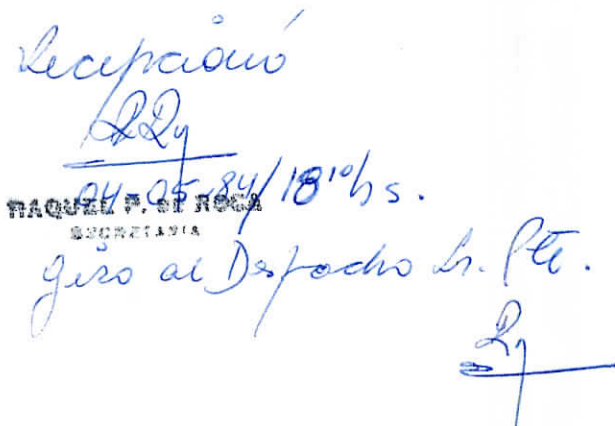 Recepcionó
04-05-84/18¹⁰hs.
RAQUEL P. DE ROCA
SECRETARIA
Giro al Despacho Sr. Pte.